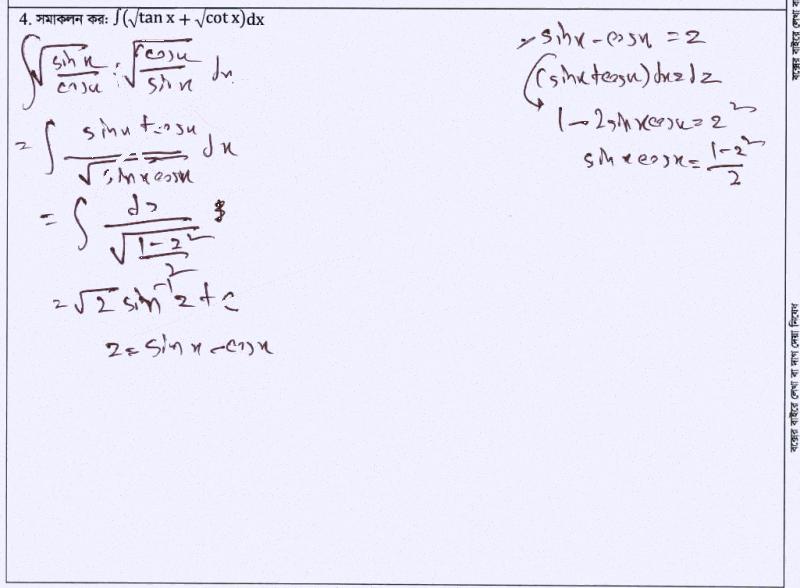 4. সমাকলন কর: ∫(√tan x + √cot x)dx
∫√(sin x/cos x) + √(cos x/sin x) dx
= ∫ (sin x + cos x)/√(sin x cos x) dx
= ∫ dz/√((1-z²)/2)
= √2 sin⁻¹ z + c
z = sin x - cos x
sin x - cos x = z
(sin x + cos x) dx = dz
1 - 2 sin x cos x = z²
sin x cos x = (1-z²)/2
বক্সের বাইরে লেখা বা দাগ দেয়া নিষেধ
বক্সের বাইরে লেখা বা